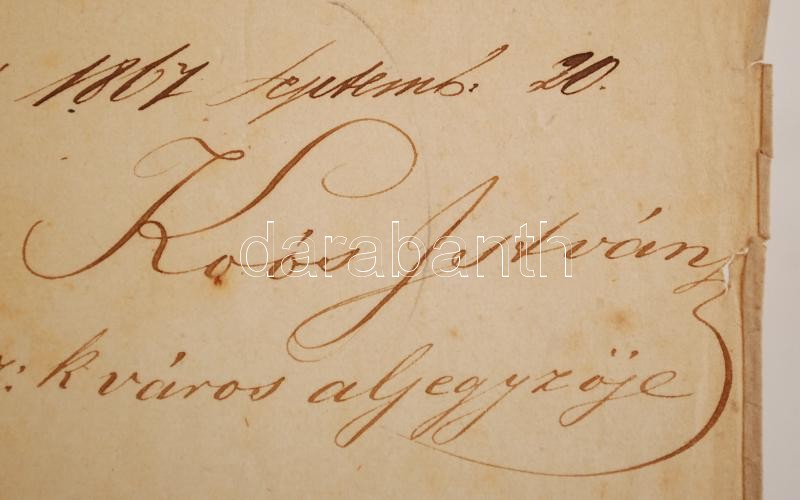 1867 Septemb. 20.
Koós István
k város aljegyzője
darabanth